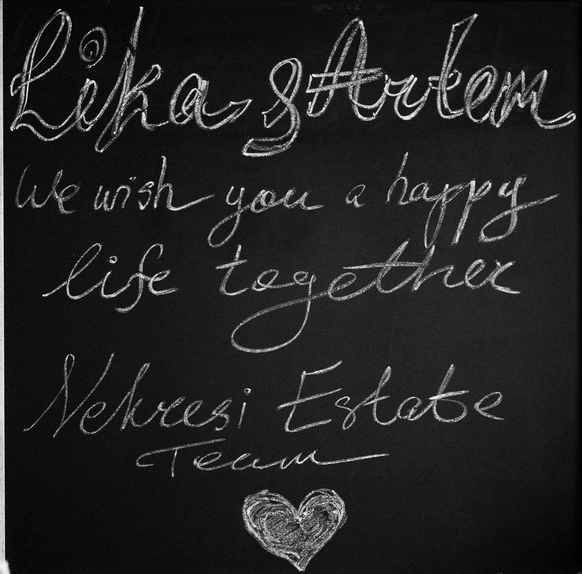 Lika & Artem
We wish you a happy
life together
Nekresi Estate
Team